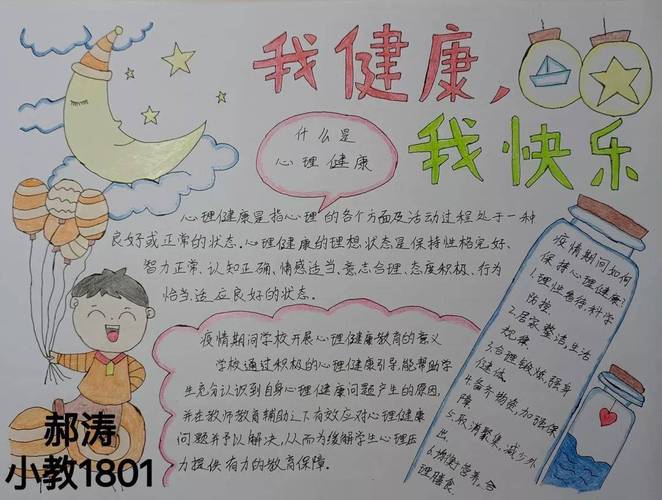 我健康，
我快乐
什么是
心理健康
心理健康是指心理的各个方面及活动过程处于一种
良好或正常的状态。心理健康的理想状态是保持性格完好、
智力正常、认知正确、情感适当、意志合理、态度积极、行为
恰当、适应良好的状态。
疫情期间学校开展心理健康教育的意义
学校通过积极的心理健康引导，能帮助学
生充分认识到自身心理健康问题产生的原因，
并在教师教育辅助之下有效应对心理健康
问题并予以解决，从而为缓解学生心理压
力提供有力的教育保障。
疫情期间如何
保持心理健康？
1.理性看待，科学
防控。
2.居家整洁，生活
规律。
3.合理锻炼，强身
健体。
4.备齐物资，加强保
障。
5.取消聚集，减少外
出。
6.均衡营养，合
理膳食。
郝涛
小教1801